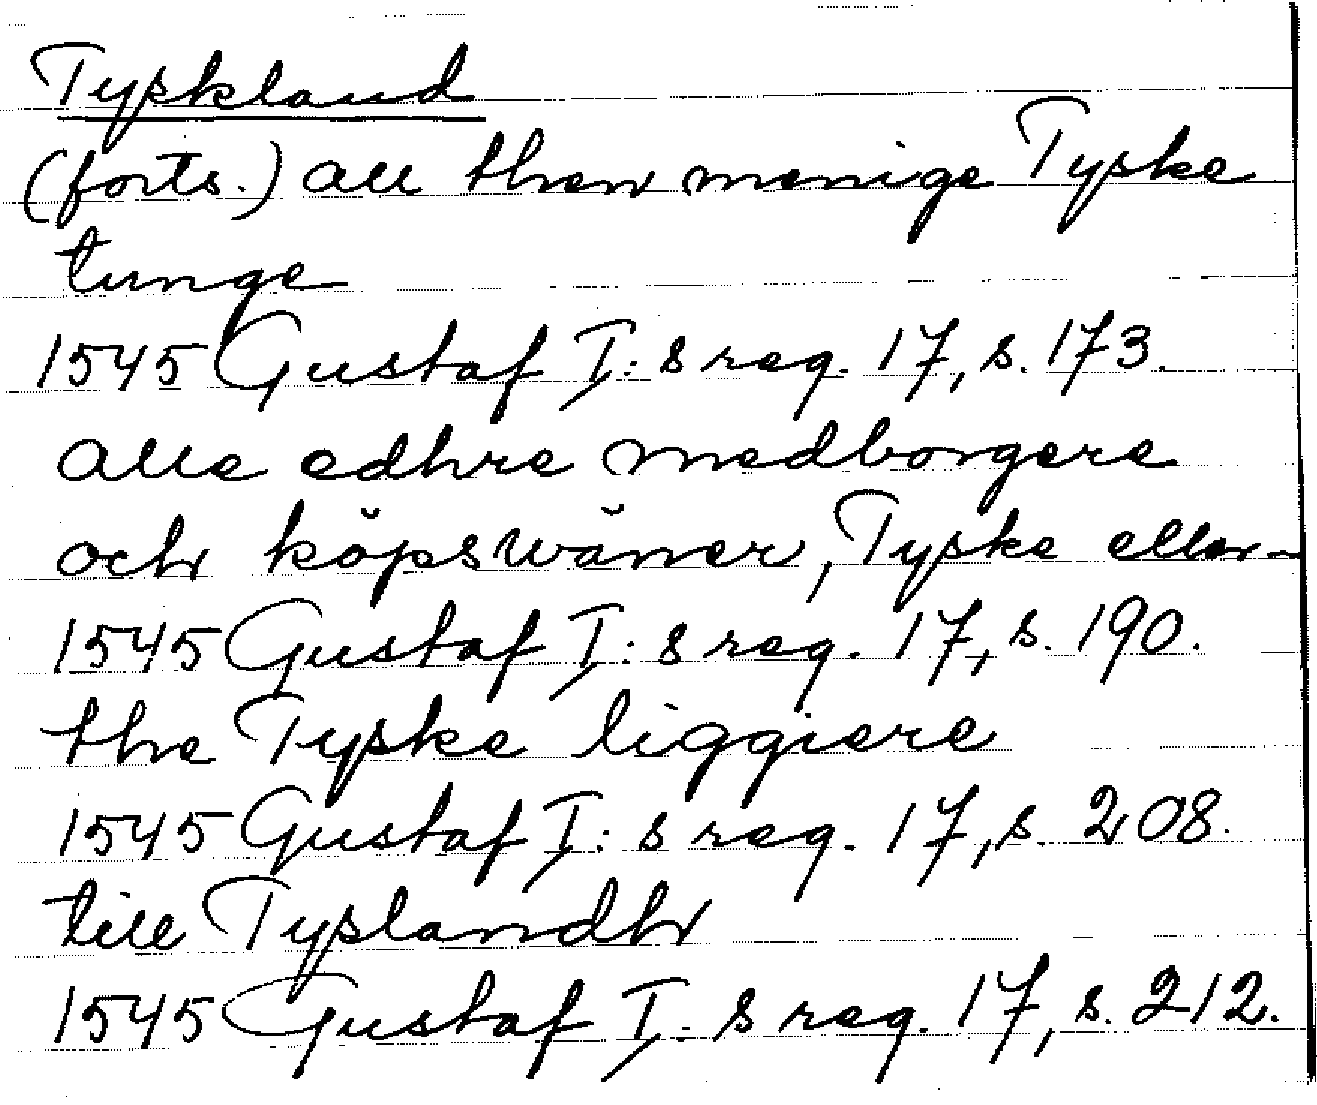 Tyskland
(forts.) all then menige Tyske
tunge
1545 Gustaf I:s reg. 17, s. 173.
alle edhre medborgere
och köpswäner, Tyske eller -
1545 Gustaf I:s reg. 17, s. 190.
the Tyske liggiere
1545 Gustaf I:s reg. 17, s. 208.
till Tyslandh
1545 Gustaf I:s reg. 17, s. 212.